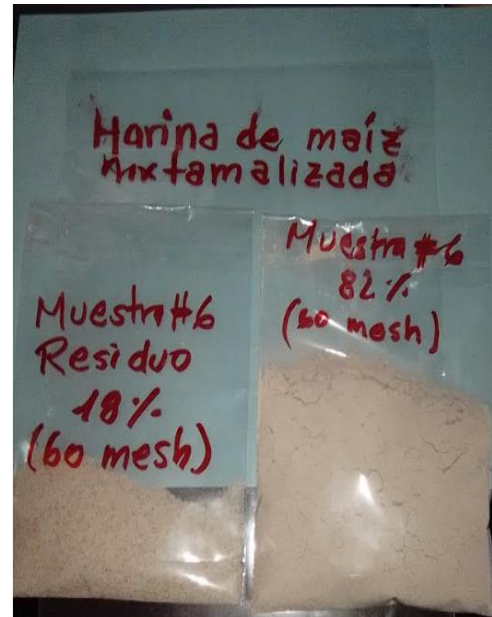 Harina de maíz
nixtamalizada
Muestra #6
Residuo
18%
(60 mesh)
Muestra #6
82%
(60 mesh)